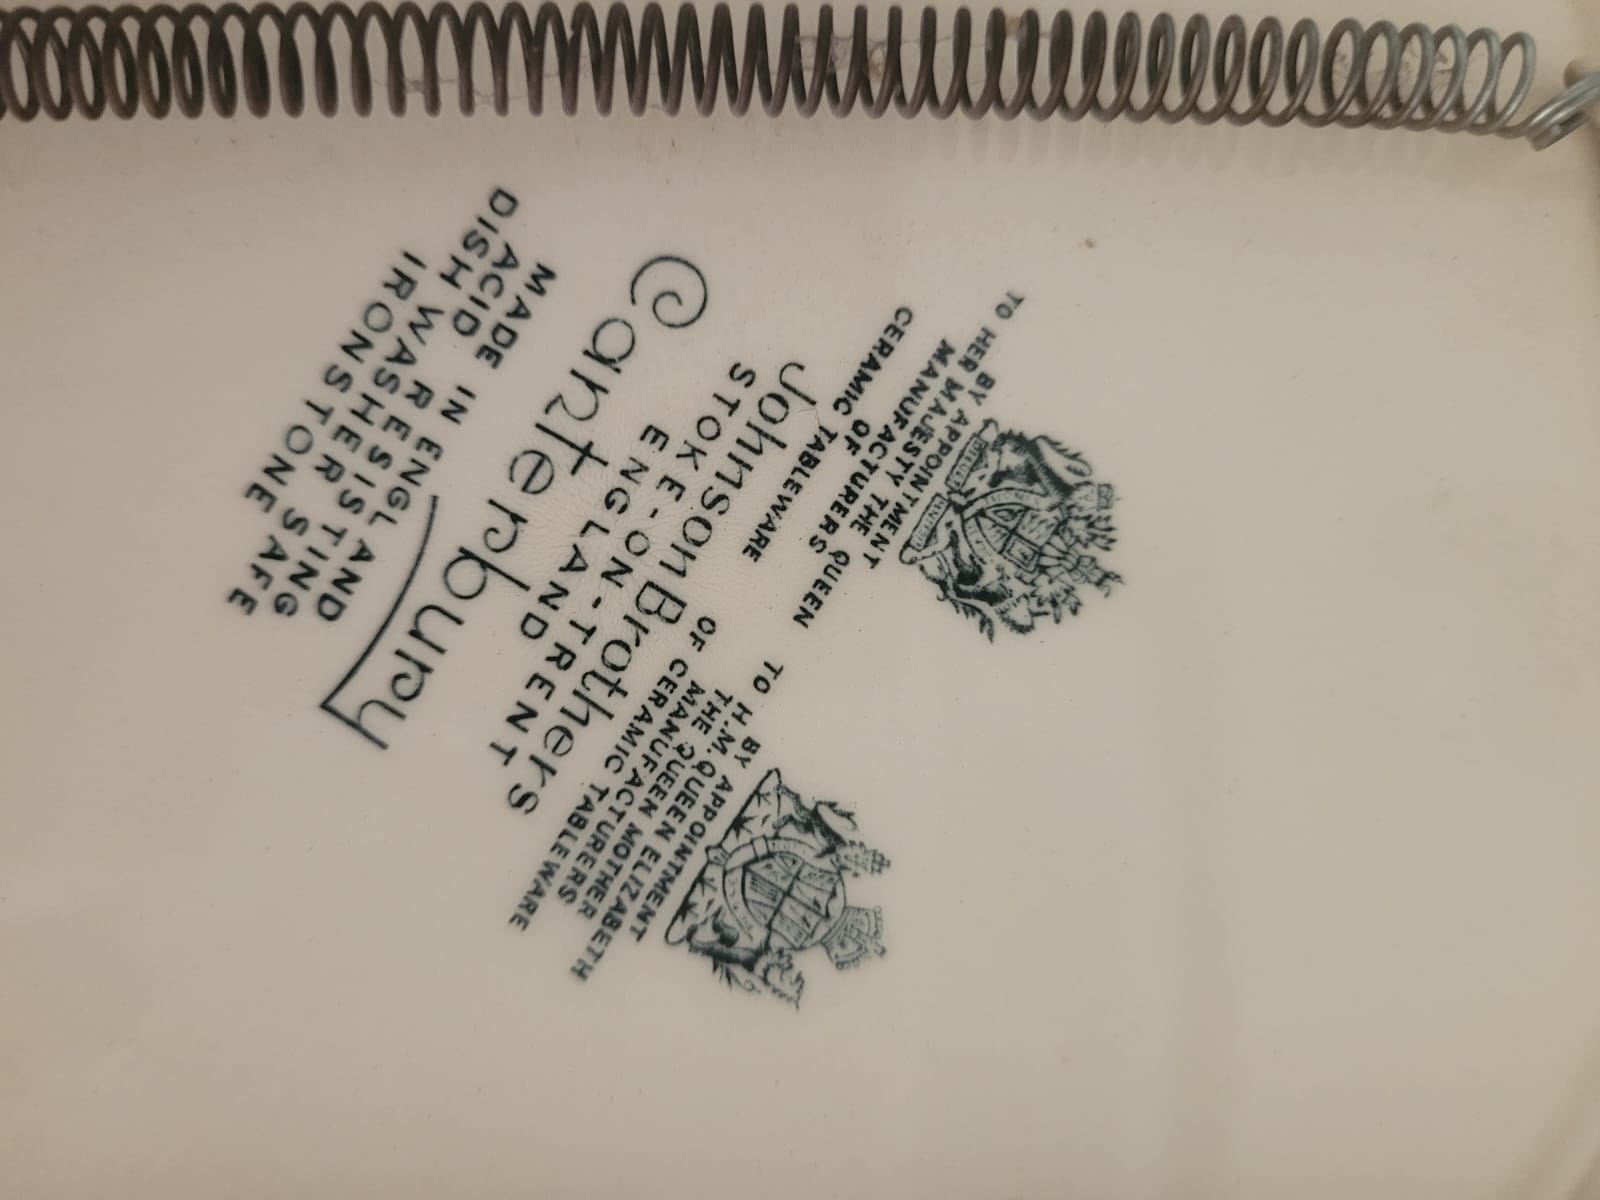 BY APPOINTMENT
TO HER MAJESTY THE QUEEN
MANUFACTURERS
OF
CERAMIC TABLEWARE
BY APPOINTMENT
TO H.M. QUEEN ELIZABETH
THE QUEEN MOTHER
MANUFACTURERS
OF CERAMIC TABLEWARE
Johnson Brothers
STOKE-ON-TRENT
ENGLAND
Canterbury
MADE IN ENGLAND
ACID RESISTING
DISH WASHER SAFE
IRONSTONE